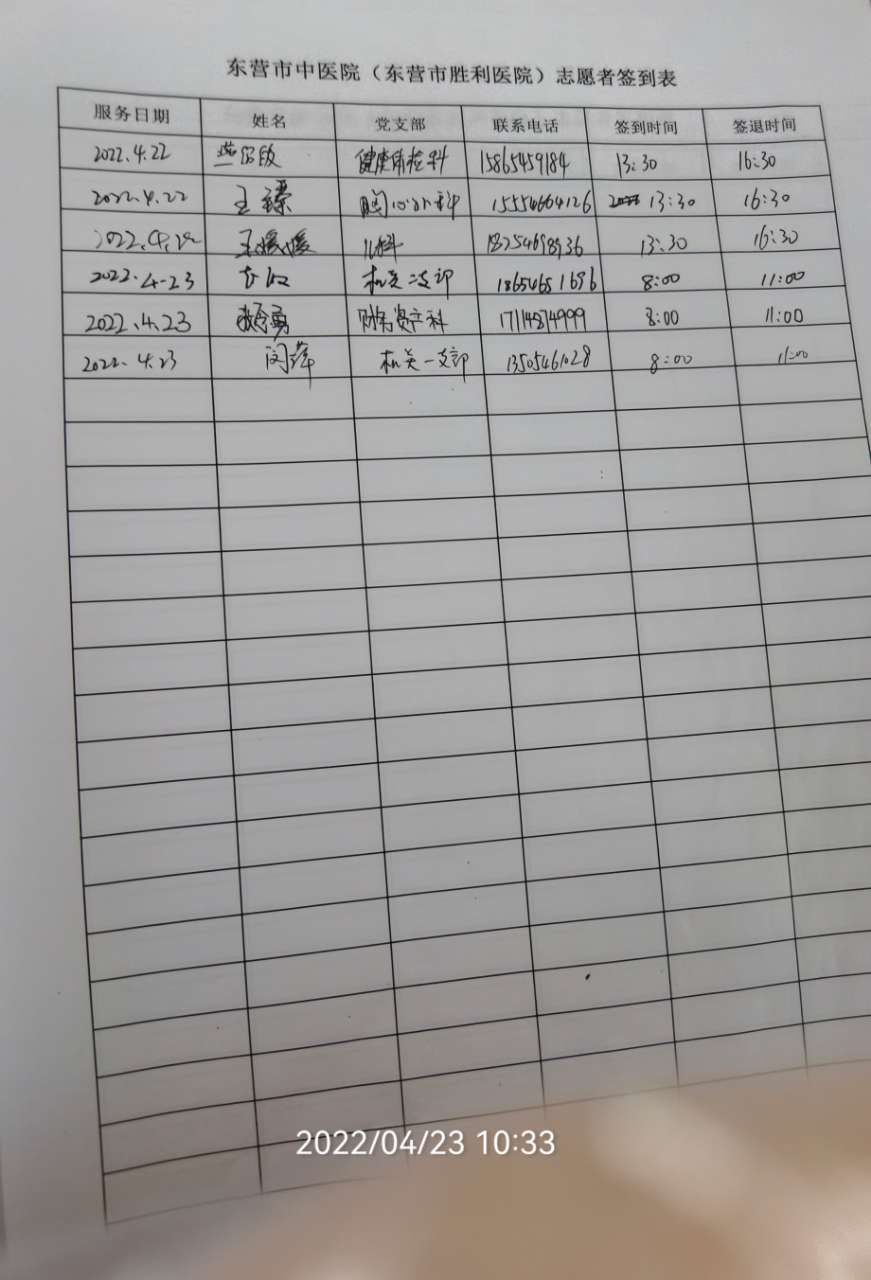 东营市中医院（东营市胜利医院）志愿者签到表
服务日期 姓名 党支部 联系电话 签到时间 签退时间
2022.4.22 健康体检科 15865459184 13:30 16:30
2022.4.22 王臻 胸心外科 15554664126 13:30 16:30
2022.4.22 王媛媛 儿科 18254698936 13:30 16:30
2022.4-23 机关二支部 18654651696 8:00 11:00
2022.4.23 勇 财务资产科 17114874999 8:00 11:00
2022.4.23 闵萍 机关一支部 13505461028 8:00 11:00
2022/04/23 10:33